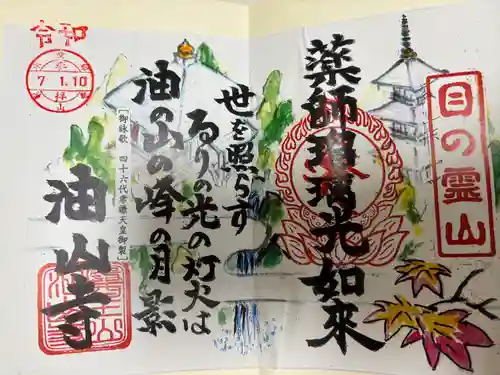 目の霊山
薬師瑠璃光如來
世を照らす
るりの光の灯火は
油の山の峰の月影
［御詠歌 四十六代孝謙天皇御製］
油山寺
令和
7.1.10